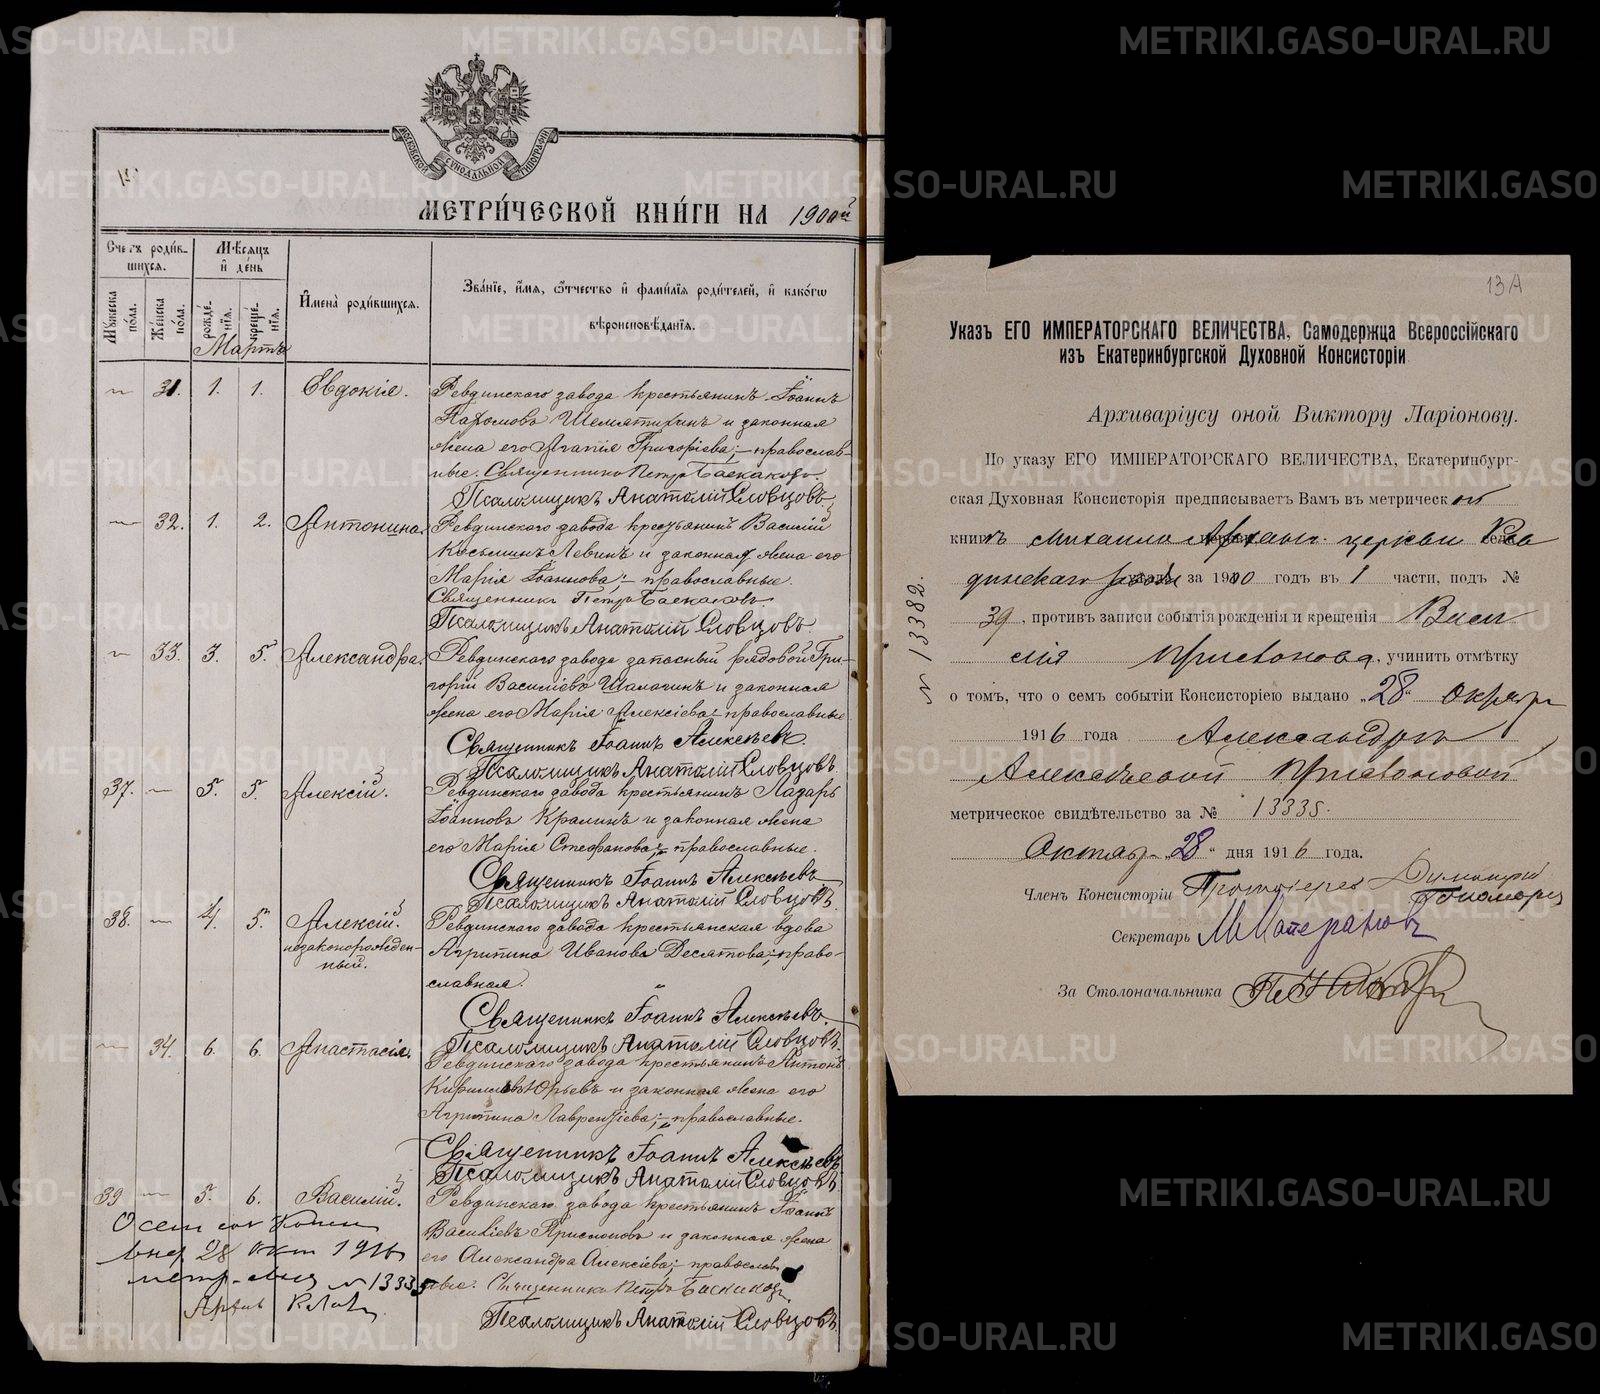 МОСКОВСКОЙ СѴНОДАЛЬНОЙ ТИПОГРАФІИ
МЕТРИ́ЧЕСКОЙ КНИ́ГИ НА 1900й
Счетъ роди́в-
шихся.
Мѣсяцъ
и́ де́нь
Мꙋжеска по́ла.
Же́нска по́ла.
рожде́-
нїя.
креще́-
нїя.
И҆мена̀ роди́вшихся.
Зва́нїе, и҆́мя, ѻ҆́тчество и҆ фами́лїя роди́телей, и҆ како́гѡ
вѣроисповѣ́данїя.
Мартъ
31. 1. 1. Евдокія. Ревдинскаго завода крестьянинъ Іоаннъ
Шемятихинъ и законная
жена его Агапія Григоріева; – православ-
ные. Священникъ Петръ Баскаковъ.
Псаломщикъ Анатолій Словцовъ.
32. 1. 2. Антонина. Ревдинскаго завода крестьянинъ Василій
Косьминъ Левинъ и законная жена его
Марія Іоаннова; – православные.
Священникъ Петръ Баскаковъ.
Псаломщикъ Анатолій Словцовъ.
33. 3. 5. Александра. Ревдинскаго завода запасный рядовой Гри-
горій Василіевъ Шалагинъ и законная
жена его Марія Алексіева; – православные
Священникъ Іоаннъ Алексѣевъ.
Псаломщикъ Анатолій Словцовъ.
37. 5. 5. Алексій. Ревдинскаго завода крестьянинъ Лазарь
Іоанновъ Кралинъ и законная жена
его Марія Стефанова; – православные.
Священникъ Іоаннъ Алексѣевъ
Псаломщикъ Анатолій Словцовъ.
38. 4. 5. Алексій. Ревдинскаго завода крестьянская вдова
незаконорожден- Агрипина Иванова Десятова; – право-
ный. славная.
Священникъ Іоаннъ Алексѣевъ
Псаломщикъ Анатолій Словцовъ.
34. 6. 6. Анастасія. Ревдинскаго завода крестьянинъ Антонъ
Кириловъ Юрьевъ и законная жена его
Агрипина Лаврентіева; – православные.
Священникъ Іоаннъ Алексѣевъ
Псаломщикъ Анатолій Словцовъ.
39 5. 6. Василій. Ревдинскаго завода крестьянинъ Іоаннъ
Василіевъ Присмоновъ и законная жена
его Александра Алексіева; православ-
ные. Священникъ Петръ Баскаковъ.
Псаломщикъ Анатолій Словцовъ.
О сем
28 окт 1916
метр. № 13335
Архив
13А
Указъ ЕГО ИМПЕРАТОРСКАГО ВЕЛИЧЕСТВА, Самодержца Всероссійскаго
изъ Екатеринбургской Духовной Консисторіи
Архиваріусу оной Виктору Ларіонову.
По указу ЕГО ИМПЕРАТОРСКАГО ВЕЛИЧЕСТВА, Екатеринбург-
ская Духовная Консисторія предписываетъ Вамъ въ метрической
книгѣ Михаило Арханг. церкви Рев
динскаго за 1900 годъ въ 1 части, подъ №
39, противъ записи событія рожденія и крещенія Васи
лія, учинить отмѣтку
о томъ, что о семъ событіи Консисторіею выдано „28“ октяр
1916 года Александрѣ
Алексѣевой
метрическое свидѣтельство за № 13335.
Октяб „28“ дня 1916 года.
Членъ Консисторіи Протоіерей Димитрій
Секретарь
За Столоначальника
№ 13382.
METRIKI.GASO-URAL.RU